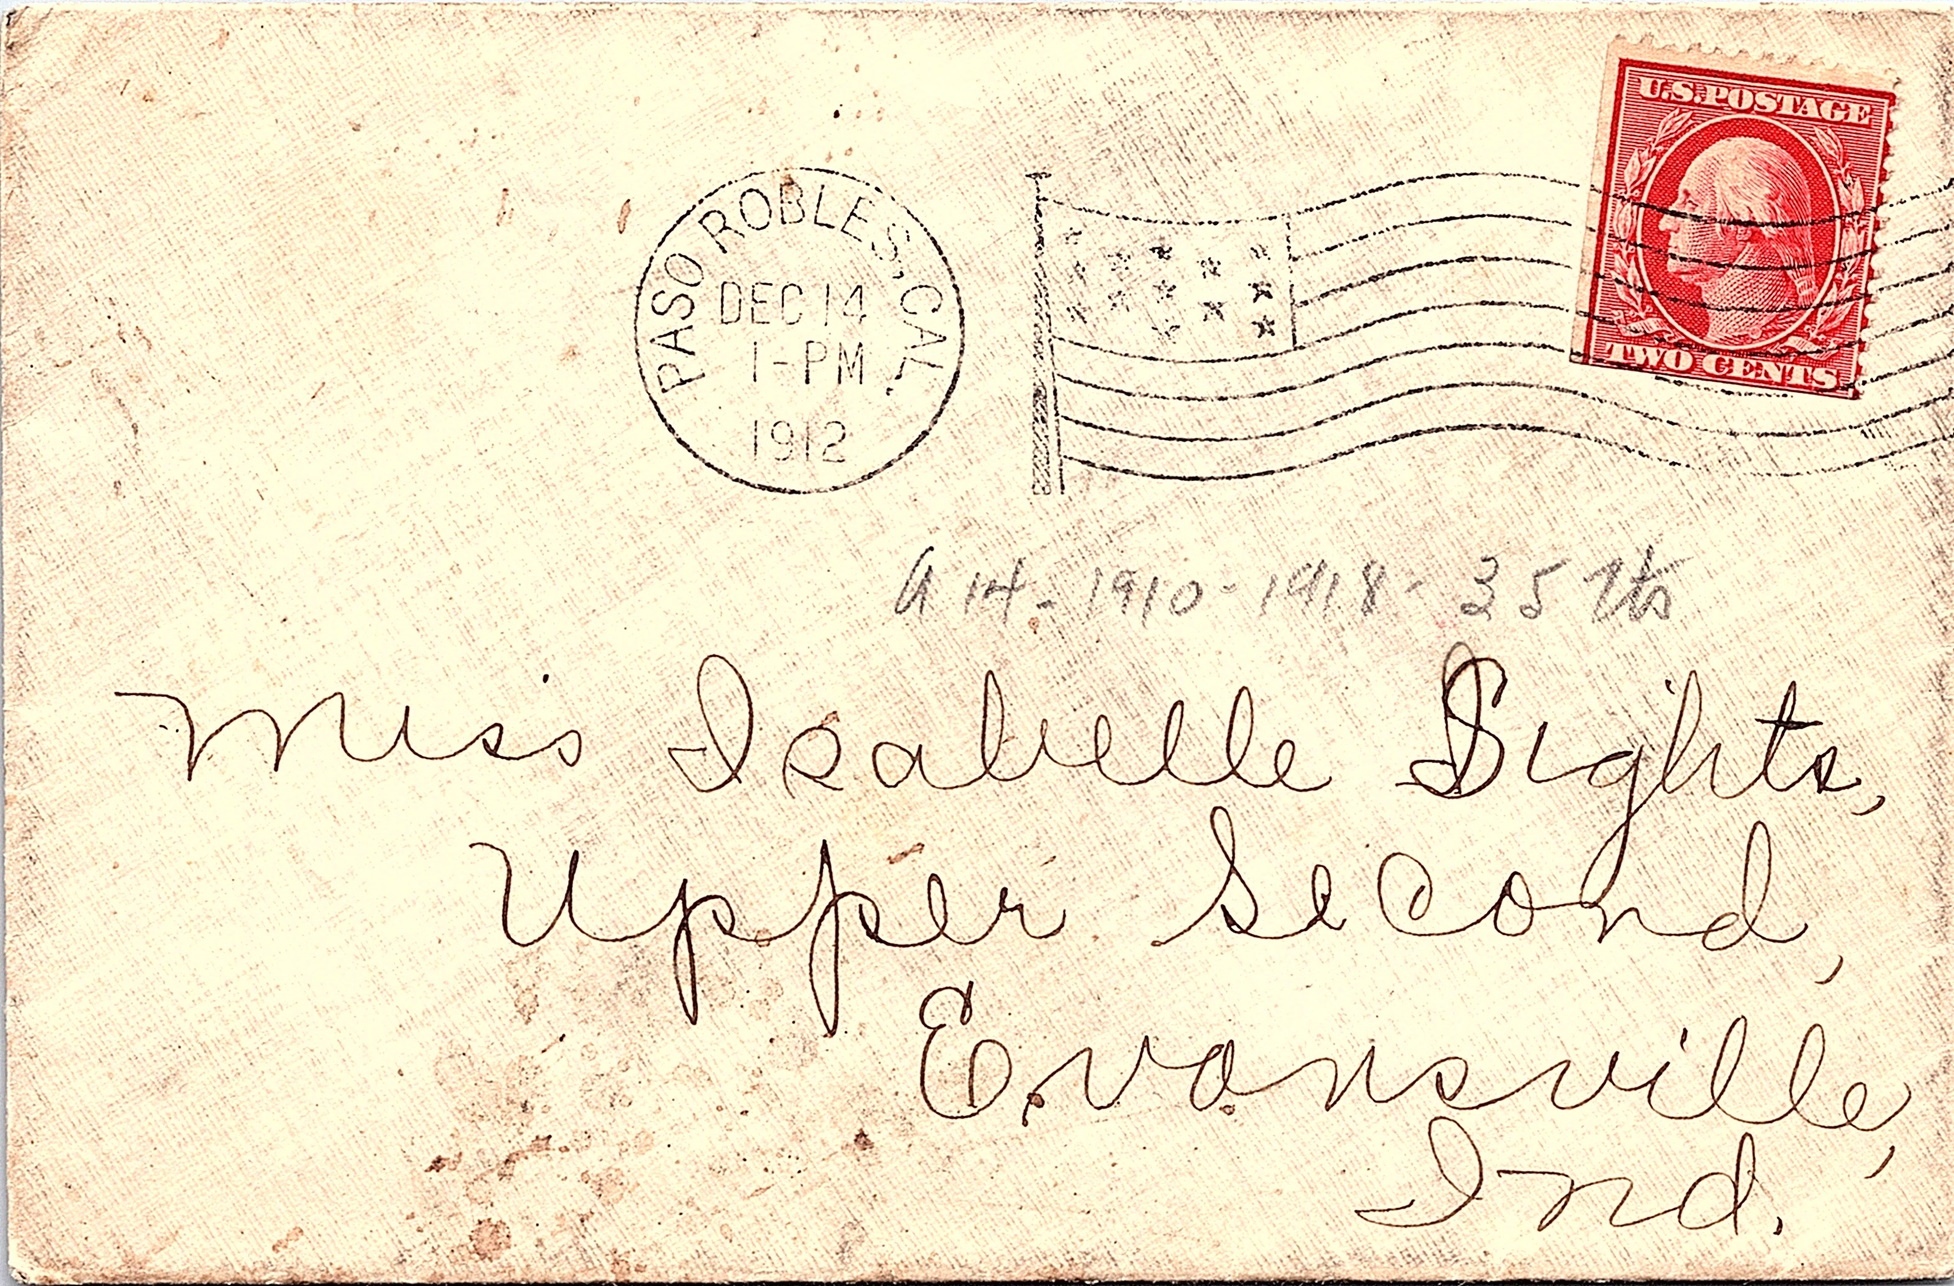 U.S. POSTAGE
TWO CENTS
PASO ROBLES, CAL.
DEC 14
1-PM
1912
A14-1910-1918-35
Miss Isabelle Sights,
Upper Second,
Evansville,
Ind.